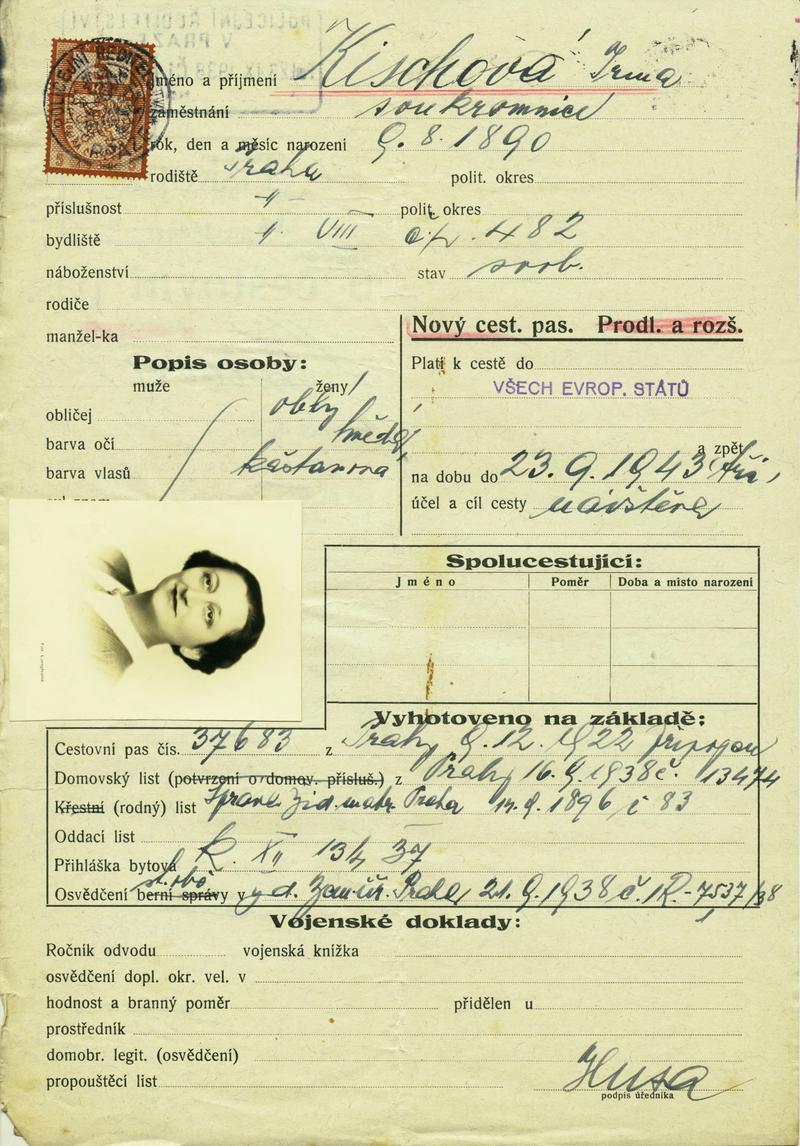 POLICEJNÍ ŘEDITELSTVÍ
V PRAZE
Jméno a příjmení Kischová Irma
zaměstnání soukromnice
rok, den a měsíc narození 9. 8. 1890
rodiště Praha polit. okres
příslušnost -"- polit. okres
bydliště " VIII čp. 482
náboženství stav svob.
rodiče
manžel-ka
Nový cest. pas. Prodl. a rozš.
Popis osoby:
muže ženy
obličej oblý
barva očí hnědé
barva vlasů kaštanová
Platí k cestě do
VŠECH EVROP. STÁTŮ
a zpět
na dobu do 23. 9. 1943
účel a cíl cesty návštěva
Spolucestující:
Jméno Poměr Doba a místo narození
Vyhotoveno na základě:
Cestovní pas čís. 37683 z Prahy 9. 12. 1922 připojen
Domovský list (potvrzení o domov. přísluš.) z Prahy 16. 9. 1938 č. 13474
Křestní (rodný) list Správa žid. matr. Praha 14. 9. 1896 / č 83
Oddací list
Přihláška bytová R. XII 134 37
Osvědčení berní správy v Praha 21. 9. 1938 č. IR-7537/38
Vojenské doklady:
Ročník odvodu vojenská knížka
osvědčení dopl. okr. vel. v
hodnost a branný poměr přidělen u
prostředník
domobr. legit. (osvědčení)
propouštěcí list
Husa
podpis úředníka